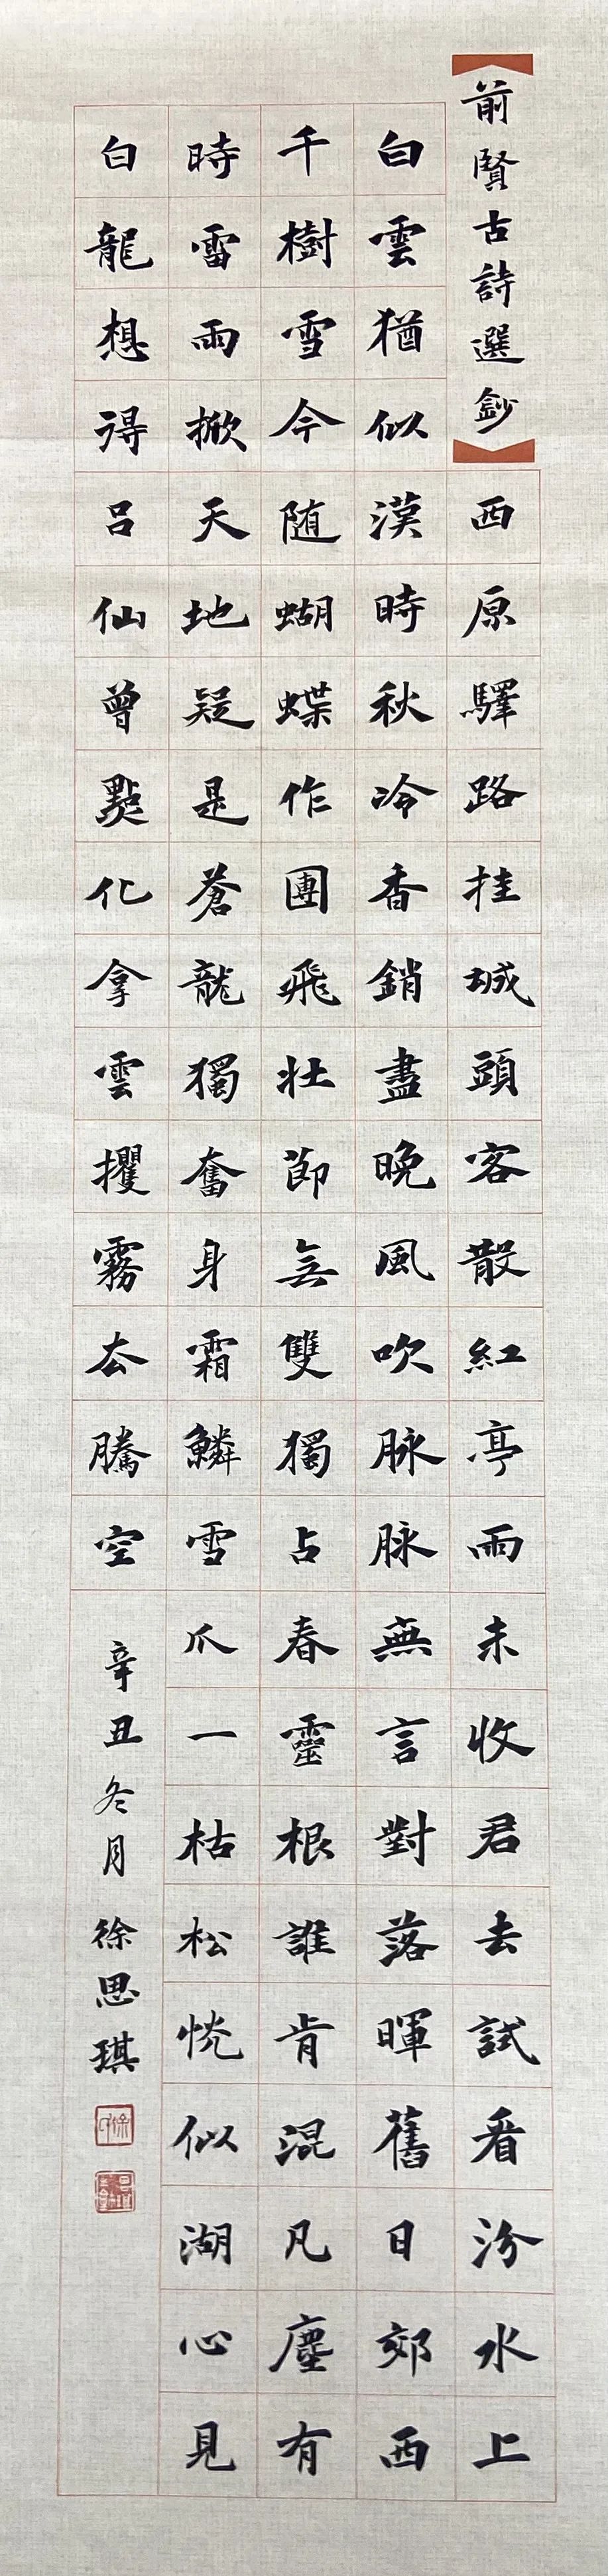 前賢古詩選鈔
西原驛路挂城頭客散紅亭雨未收君去試看汾水上
白雲猶似漢時秋冷香銷盡晚風吹脉脉無言對落暉舊日郊西
千樹雪今随蝴蝶作團飛壯節無雙獨占春靈根誰肯混凡塵有
時雷雨掀天地疑是蒼龍獨奮身霜鱗雪爪一枯松恍似湖心見
白龍想得呂仙曾點化拿雲攫霧去騰空
辛丑冬月徐思琪